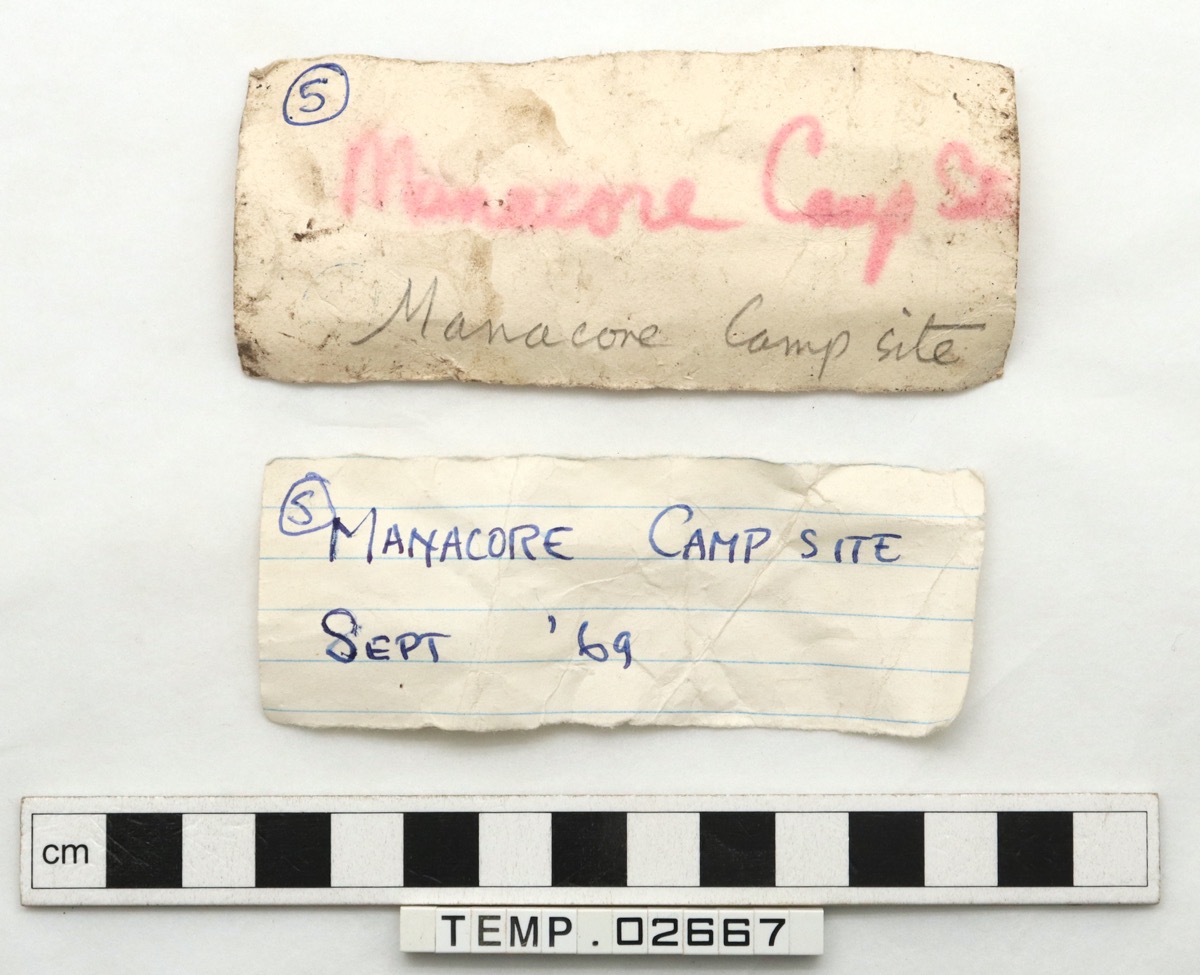 5
Manacore Camp
Manacore Camp site
5
MANACORE CAMP SITE
SEPT '69
cm
TEMP.02667